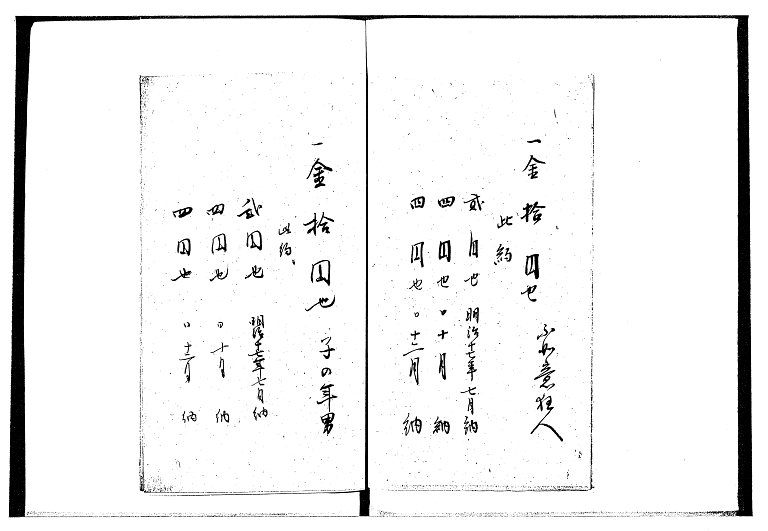 一金拾円也　不如意狂人
此約
弐円也　明治十七年七月納
四円也　〃十月　納
四円也　〃十二月　納
一金拾円也　子の年男
此約
弐円也　明治十七年七月納
四円也　〃十月　納
四円也　〃十二月　納